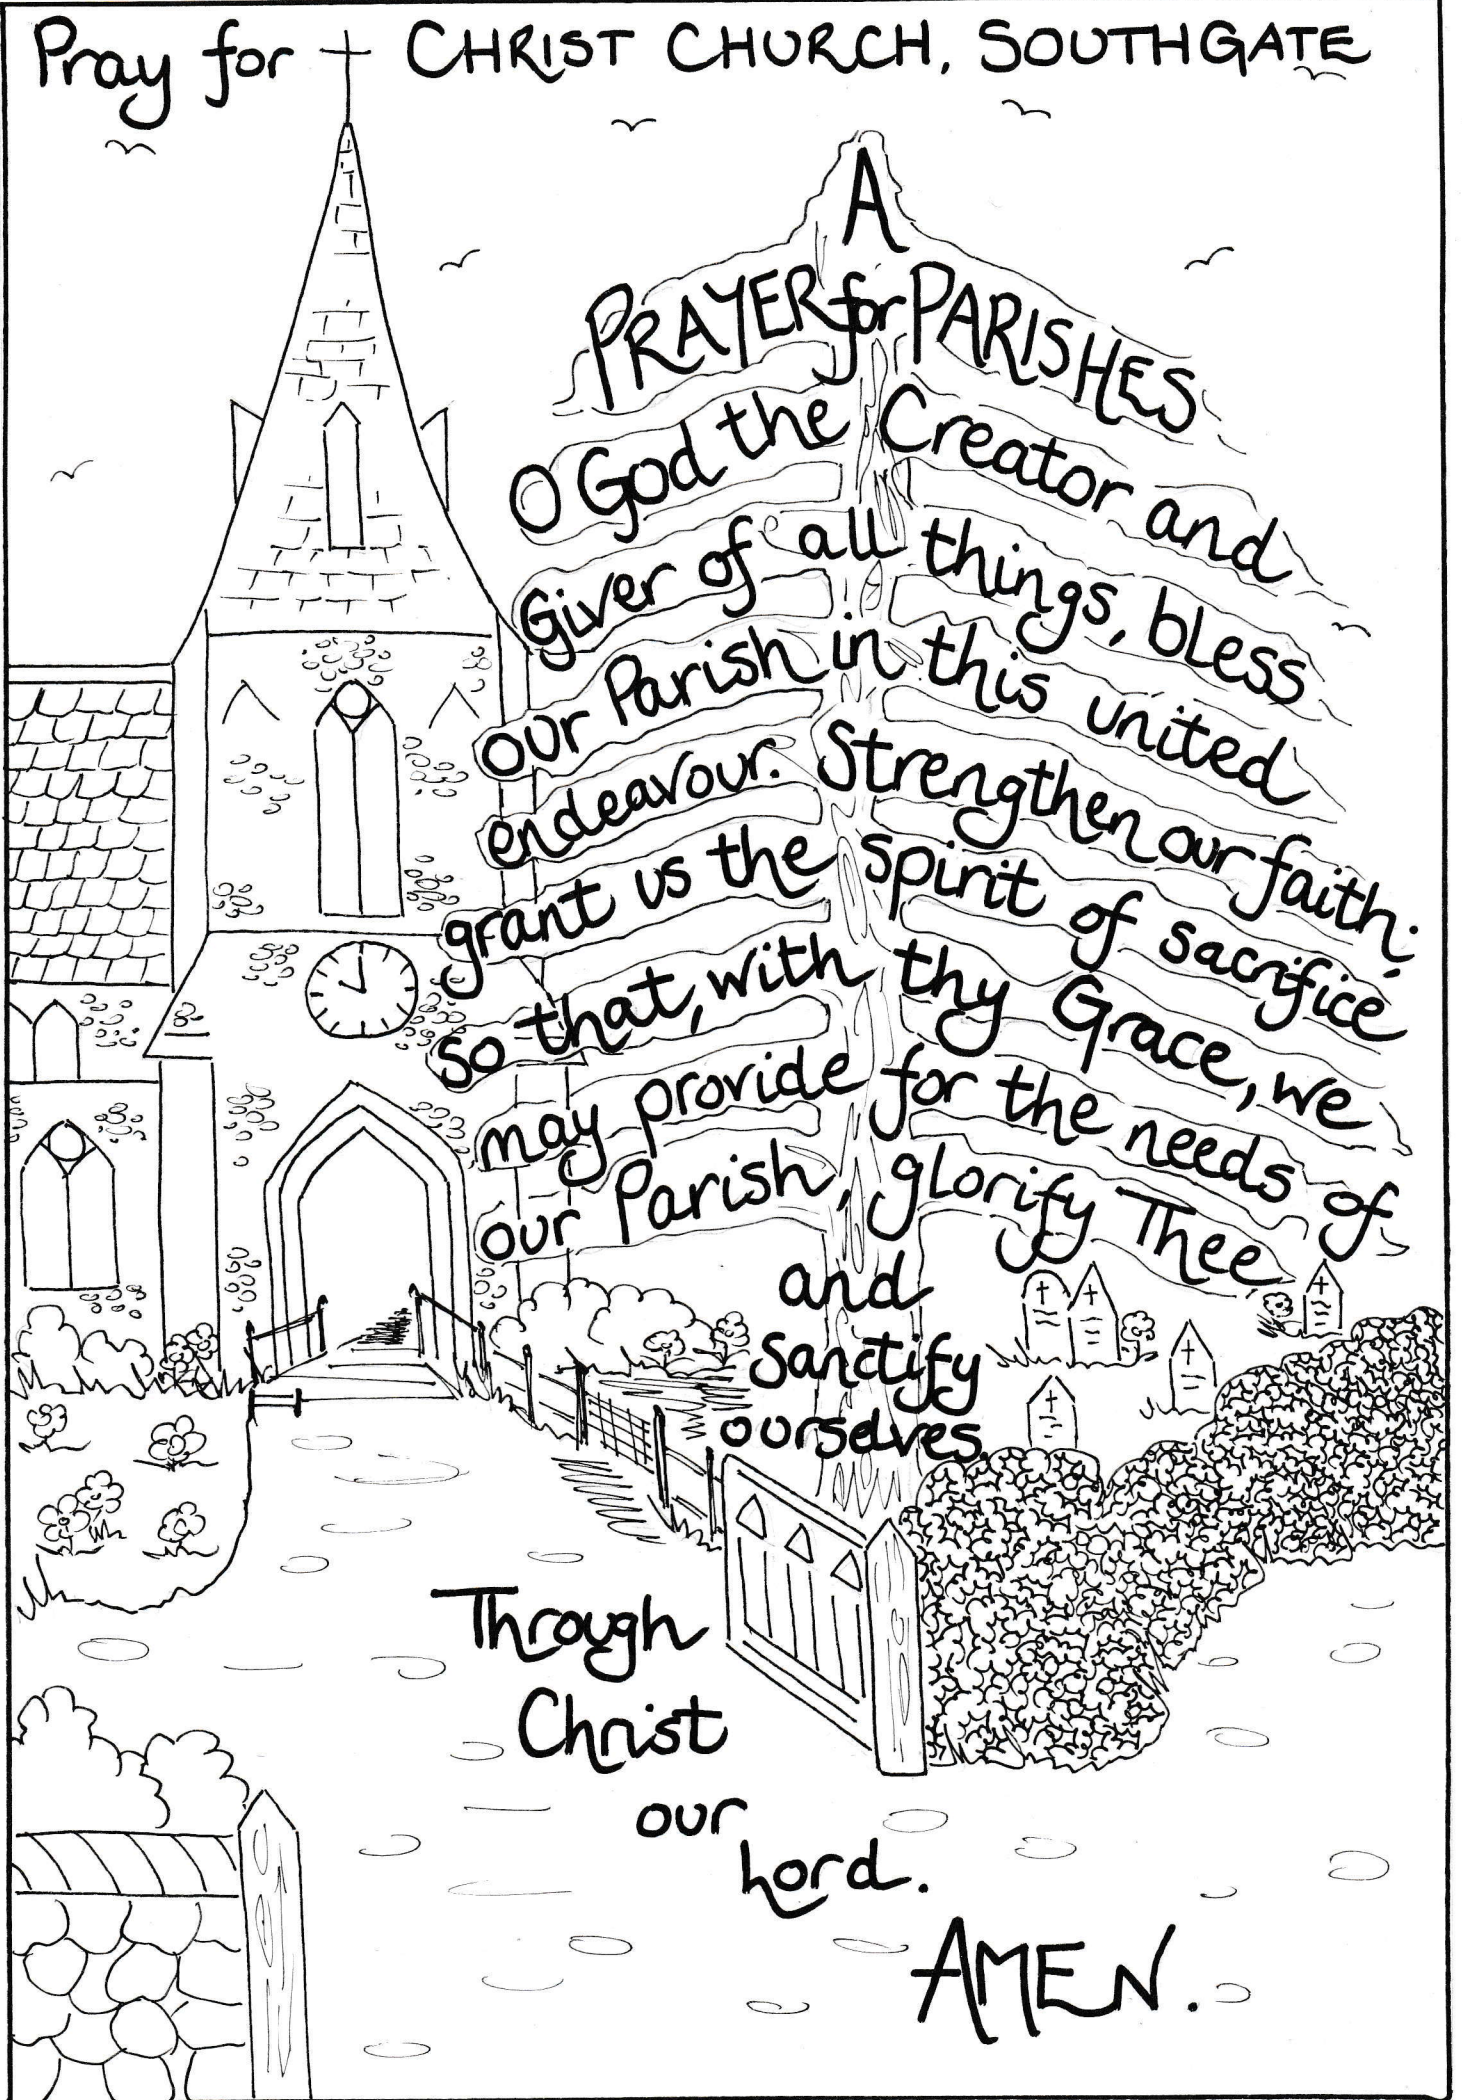 Pray for CHRIST CHURCH, SOUTHGATE
A
PRAYER for PARISHES
O God the Creator and
Giver of all things, bless
our Parish in this united
endeavour. Strengthen our faith;
grant us the spirit of sacrifice
so that, with thy Grace, we
may provide for the needs of
our Parish, glorify Thee
and
Sanctify
ourselves.
Through
Christ
our
Lord.
AMEN.